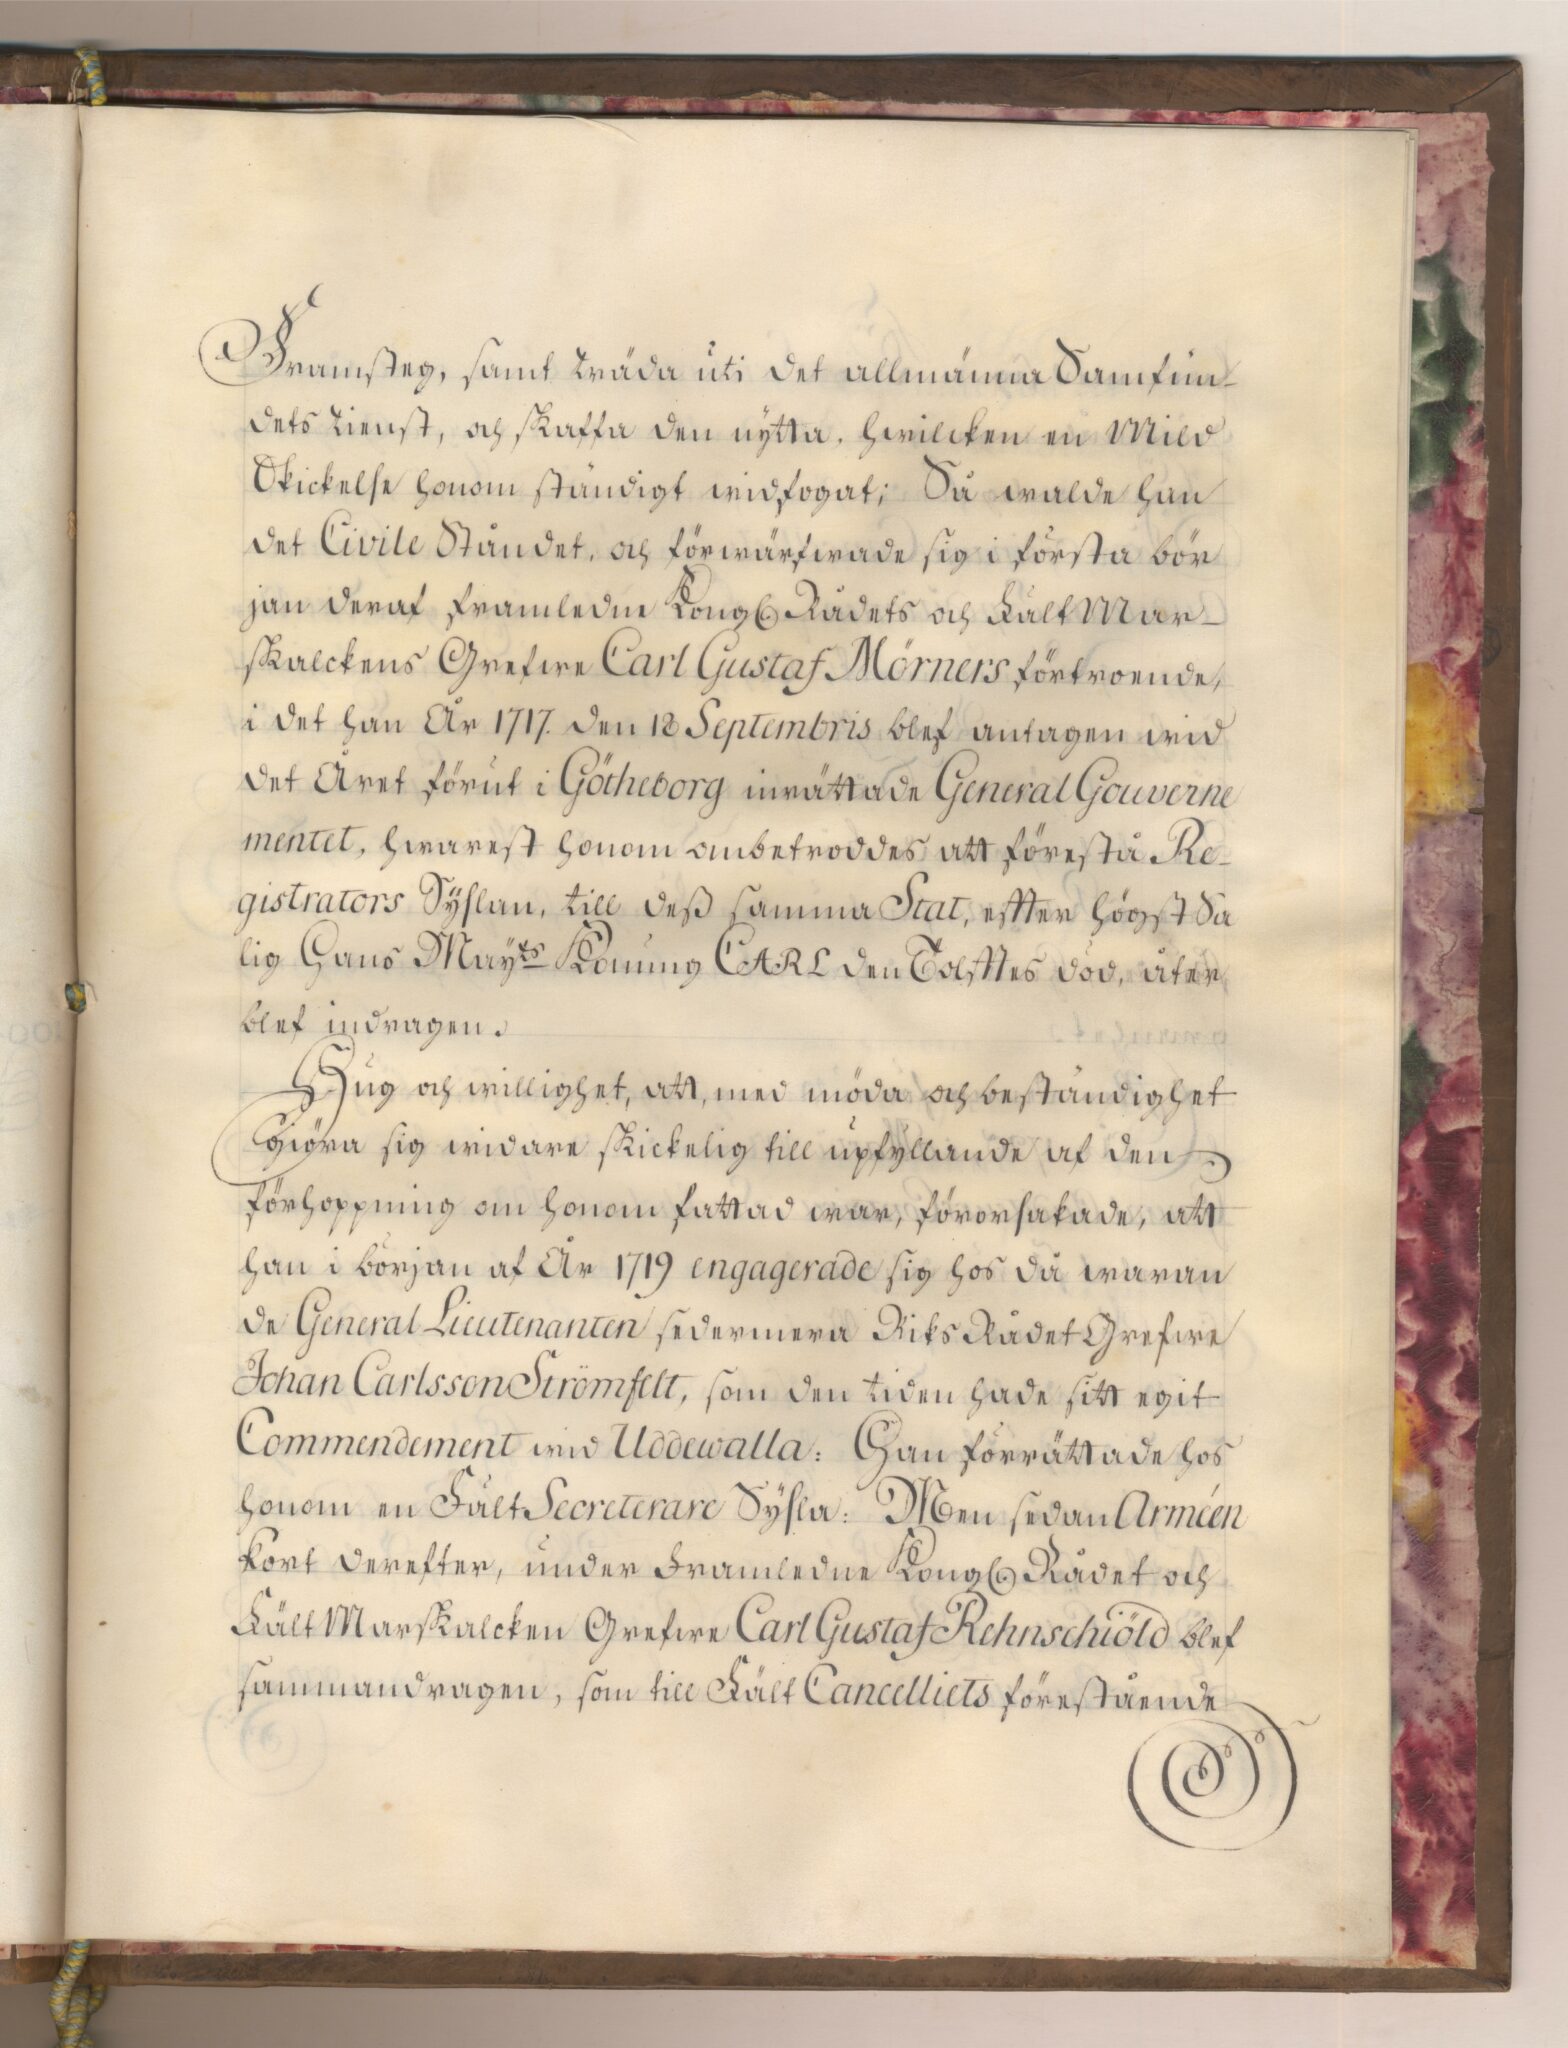 Framsteg, samt träda uti det allmänna Samfun-
dets tienst, och skaffa den nytta, hwilcken en Mild
Skickelse honom ständigt widfogat; Så walde han
det Civile Ståndet, och förwärfwade sig i första bör
jan deraf framledne Kongl. Rådets och Fält Mar-
skalckens Grefwe Carl Gustaf Mörners förtroende,
i det han År 1717. den 18 Septembris blef antagen wid
det Året förut i Götheborg inrättade General Gouverne
mentet, hwarest honom anbetroddes att förestå Re-
gistrators Sÿslan, till deß samma Stat, effter högst Sa
lig Hans Mayts Konung CARL den Tolfftes död, åter
blef indragen.
Hug och willighet, att, med möda och beständighet
Giöra sig widare skickelig till upfyllande af den
förhoppning om honom fattad war, förorsakade, att
han i början af År 1719 engagerade sig hos då waran
de General Lieutenanten sedermera Riks Rådet Grefwe
Johan Carlsson Strömfelt, som den tiden hade sitt egit
Commendement wid Uddewalla: Han förrättade hos
honom en Fält Secreterare Sÿsla: Men sedan Arméen
kort derefter, under Framledne Kongl. Rådet och
Fält Marskalcken Grefwe Carl Gustaf Rehnschiöld blef
sammandragen, som till Fält Cancelliets förestående